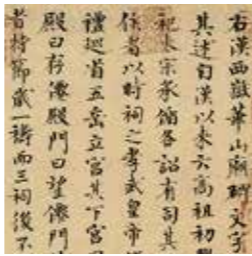 右漢西嶽華山廟碑文字
其述自漢以來云高祖初興
祀太宗承循各詔有司其
侯者以時祠之孝武皇帝
禮巡省五岳立宮其下宮
殿曰存僊殿門曰望僊門
者持節歲一禱而三祠後不